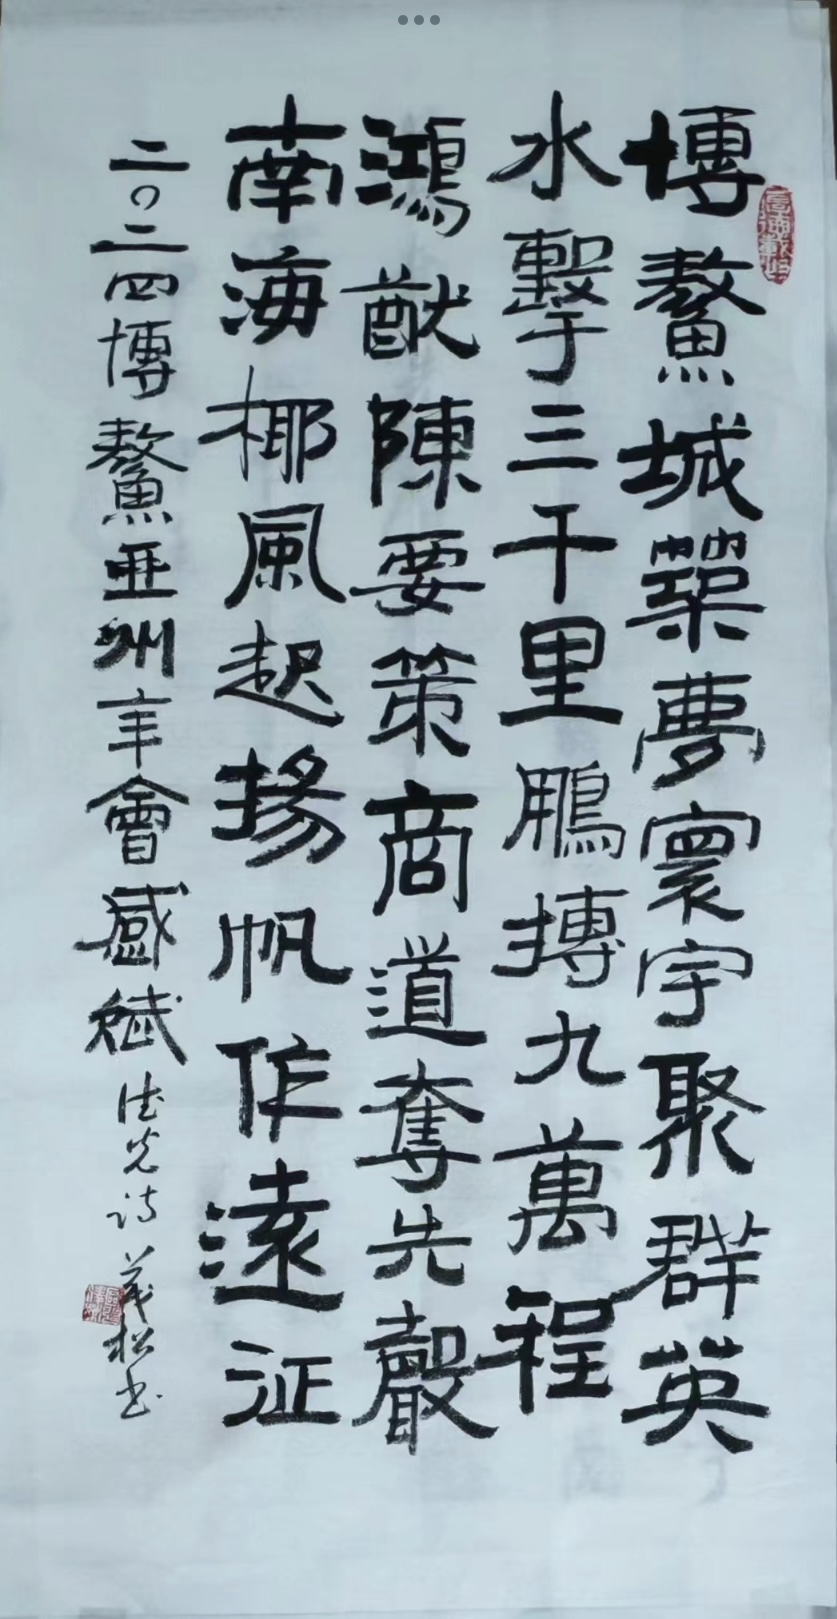 博鰲城築夢寰宇聚群英
水擊三千里鵬搏九萬程
鴻猷陳要策商道奪先聲
南海椰風起揚帆作遠征
二〇二四博鰲亚洲年會感賦 德光诗 茂松书